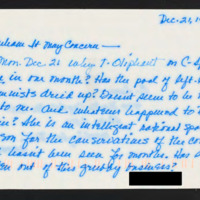 Dec. 21, 1
May Concern —
Mon. Dec 21 when T. Oliphant on C-S
in one month? Has the pool of
dried up? Doesn't seem to be
to me. And whatever happened to
? She is an intelligent national spo
son for the Conservatives of the co
hasn't been seen for months. Has s
en out of this greedy business?